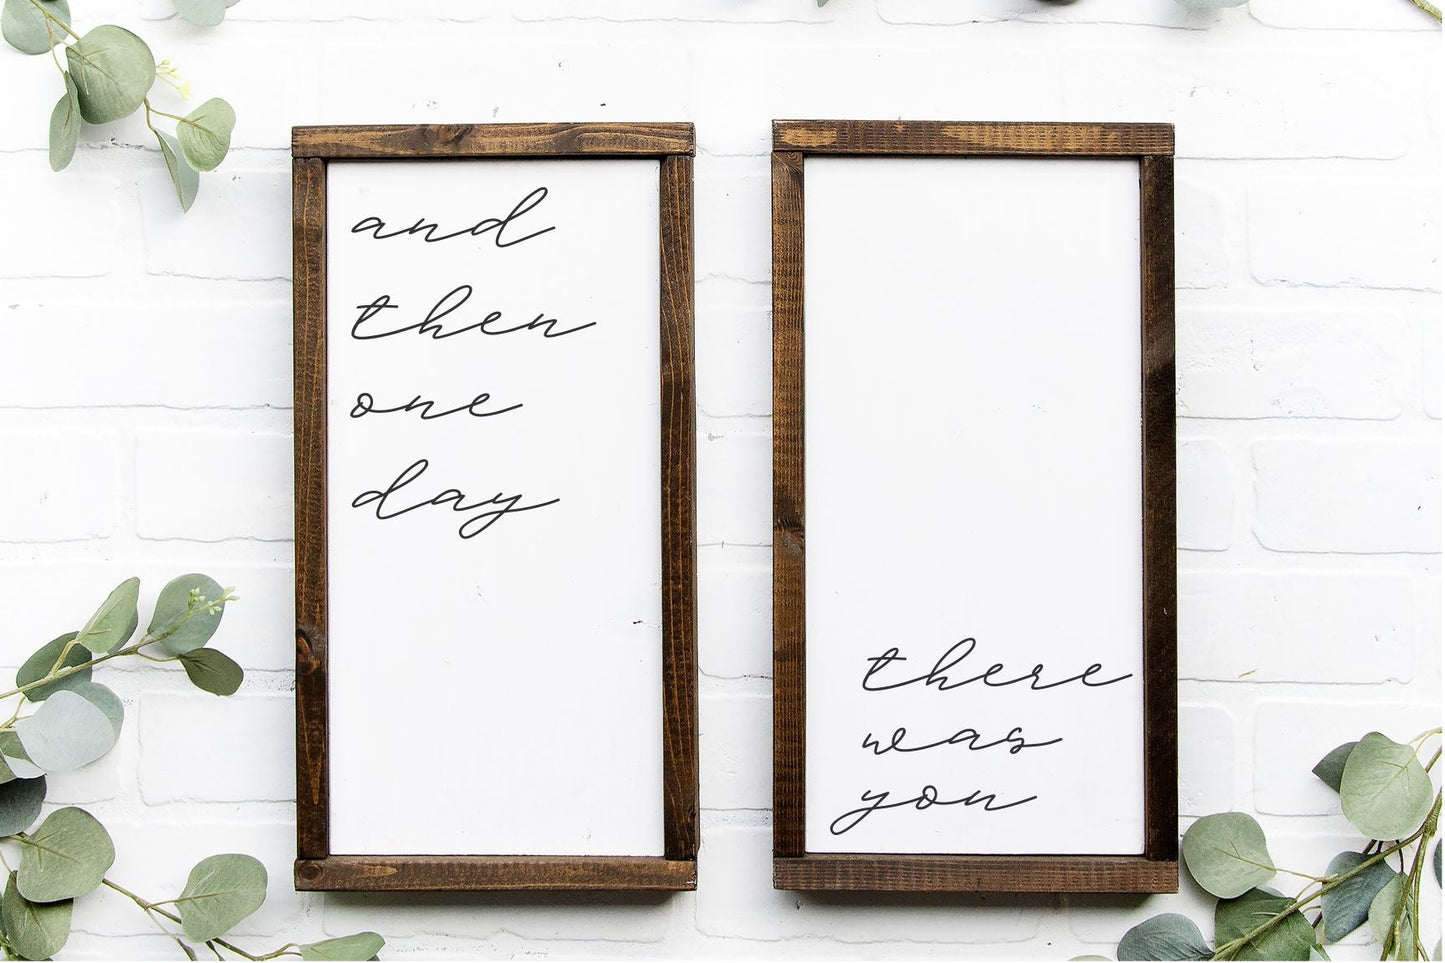 and
then
one
day
there
was
you